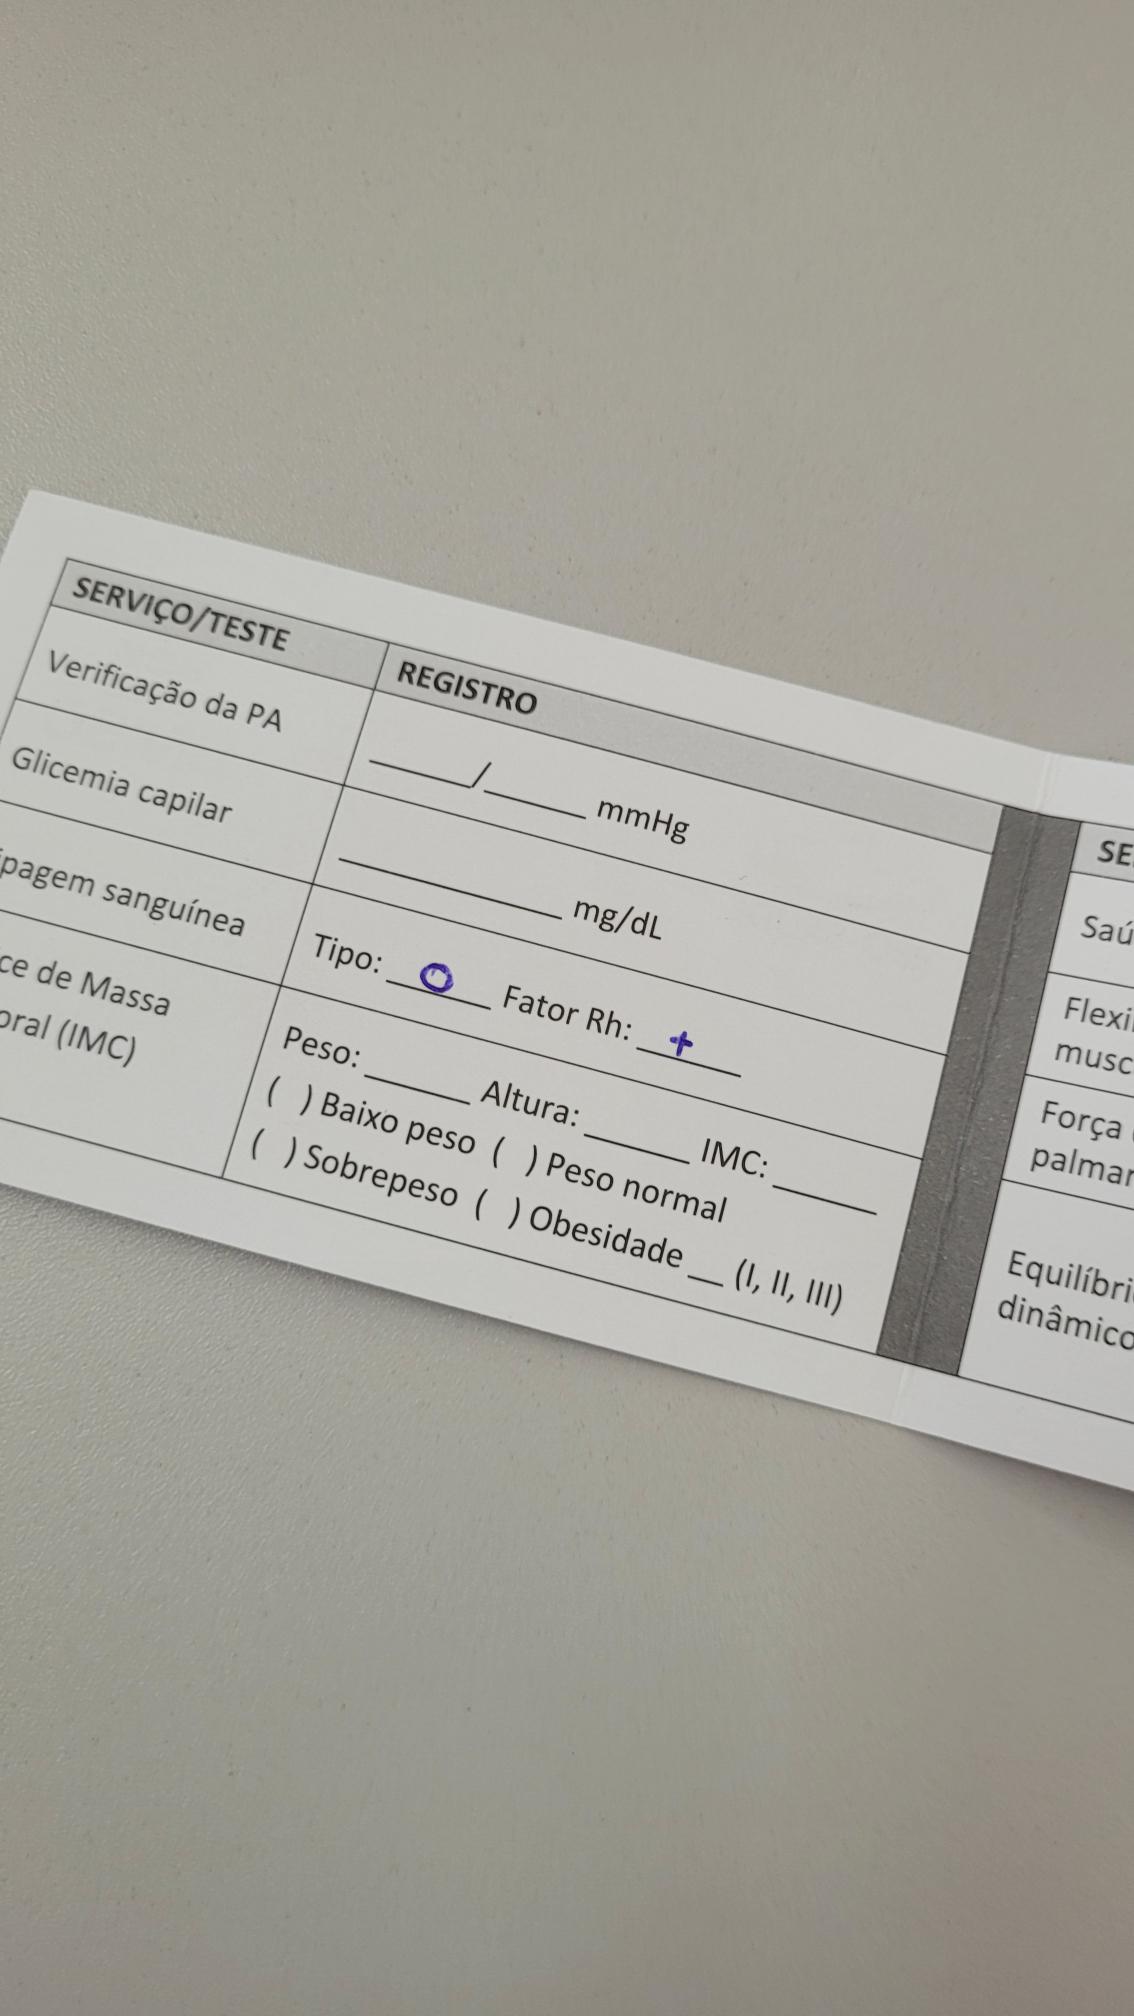 SERVIÇO/TESTE
REGISTRO
Verificação da PA
_____/_____ mmHg
Glicemia capilar
___________ mg/dL
ipagem sanguínea
Tipo: __O__ Fator Rh: __+__
ce de Massa
oral (IMC)
Peso: _____ Altura: _____ IMC: _____
( ) Baixo peso ( ) Peso normal
( ) Sobrepeso ( ) Obesidade __ (I, II, III)
SE
Saú
Flexi
musc
Força
palmar
Equilíbri
dinâmico